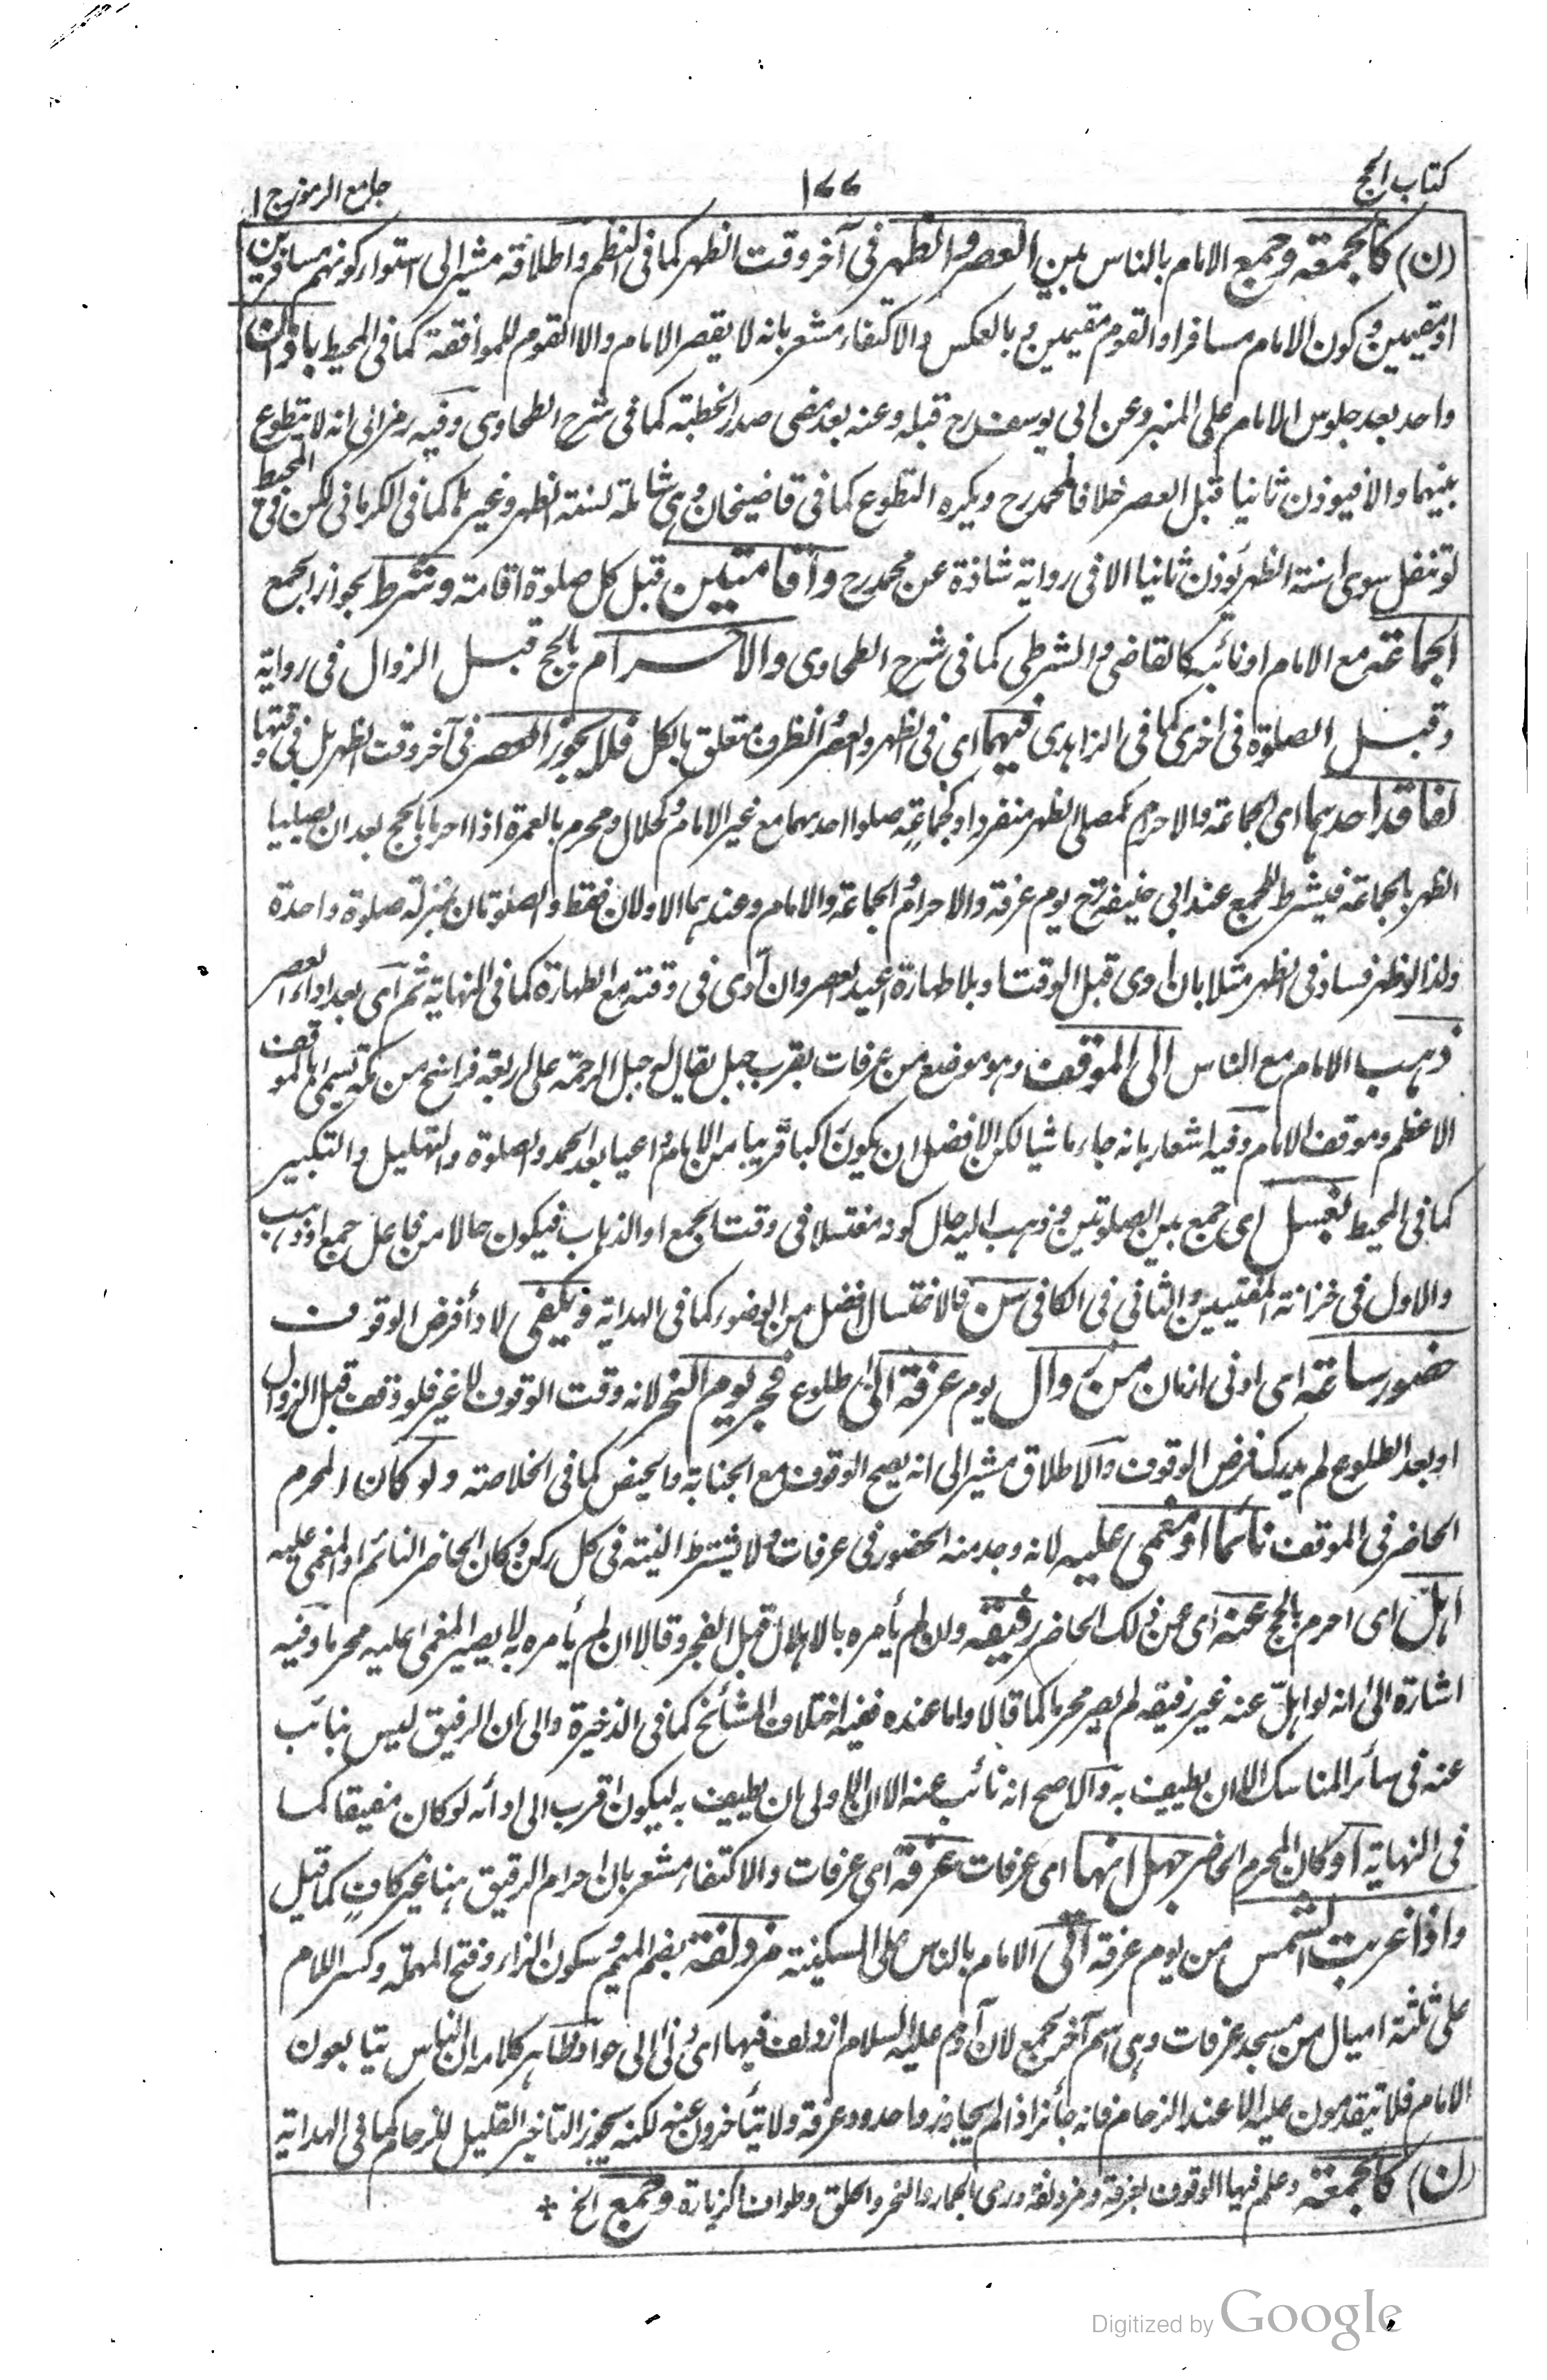 كتاب الحج ١٧٧ جامع الرموز ج ١
(ن) كالجمعة وجمع الامام بالناس بين العصر والظهر فى آخر وقت الظهر كما فى النظم واطلاقه مشير الى استواء كونهم مسافرين
او مقيمين وكون الامام مسافرا والقوم مقيمين وبالعكس والاكتفاء مشعر بانه لا يقصر الامام والا القوم للموافقة كما فى المحيط باذان
واحد بعد جلوس الامام على المنبر وعن ابى يوسف رح قبله وعنه بعد مضى صدر الخطبة كما فى شرح الطحاوى وفيه رمز الى انه لا يتطوع
بينهما والا فيوذن ثانيا قبل العصر خلافا لمحمد رح ويكره التطوع كما فى قاضيخان وهى شاملة لسنة الظهر وغيرها كما فى الكرمانى لكن فى المحيط
لو تنفل سوى سنة الظهر يوذن ثانيا الا فى رواية شاذة عن محمد رح واقامتين قبل كل صلوة اقامة وشرط لجواز الجمع
الجماعة مع الامام او نائبه كالقاضى والشرطى كما فى شرح الطحاوى والاحرام بالحج قبل الزوال فى رواية
وقبل الصلوة فى اخرى كما فى الزاهدى فيهما اى فى الظهر والعصر والظرف متعلق بالكل فلا يجوز العصر فى آخر وقت الظهر بل فى وقتها
لفاقد احدهما اى الجماعة والاحرام كمصلى الظهر منفردا او كجماعة صلوا احدهما مع غير الامام وكحلال ومحرم بالعمرة اذا احرما بالحج بعد ان يصليا
الظهر بالجماعة فيشترط للجمع عند ابى حنيفة رح يوم عرفة والاحرام والجماعة والامام وعندهما الاولان فقط والصلوتان بمنزلة صلوة واحدة
ولذا لو ظهر فساد فى الظهر مثلا بان ادى قبل الوقت او بلا طهارة اعيد العصر وان ادى فى وقته مع الطهارة كما فى النهاية ثم اى بعد اداء العصر
ذهب الامام مع الناس الى الموقف وهو موضع من عرفات بقرب جبل يقال له جبل الرحمة على اربعة فراسخ من مكة تسمى بالموقف
الاعظم وموقف الامام وفيه اشعار بانه جاء ماشيا لكن الافضل ان يكون راكبا قريبا من الامام داعيا بعد الحمد والصلوة والتهليل والتكبير
كما فى المحيط بغسل اى جمع بين الصلوتين وذهب اليه حال كونه مغتسلا فى وقت الجمع او الذهاب فيكون حالا من فاعل جمع او ذهب
والاول فى خزانة المفتيين والثانى فى الكافى سن فالاغتسال افضل من الوضوء كما فى الهداية ويكفى لاداء فرض الوقوف
حضور ساعة اى ادنى ازمان من زوال يوم عرفة الى طلوع فجر يوم النحر لانه وقت الوقوف لا غير فلو وقف قبل الزوال
او بعد الطلوع لم يدرك فرض الوقوف والاطلاق مشير الى انه يصح الوقوف مع الجنابة والحيض كما فى الخلاصة ولو كان المحرم
الحاضر فى الموقف نائما او مغمى عليه لانه وجد منه الحضور فى عرفات ولا يشترط النية فى كل ركن وكان الحاضر النائم او المغمى عليه
اهل اى احرم بالحج عنه اى عن ذلك الحاضر رفيقه وان لم يأمره بالاهلال قبل الفجر وقالا ان لم يأمره به لا يصير المغمى عليه محرما وفيه
اشارة الى انه لو اهل عنه غير رفيقه لم يصر محرما كما قالا واما عنده ففيه اختلاف المشائخ كما فى الذخيرة والى ان الرفيق ليس بنائب
عنه فى سائر المناسك الا ان يطيف به والاصح انه نائب عنه الا ان الاولى ان يطيف به ليكون اقرب الى ادائه لو كان مفيقا كما
فى النهاية او كان المحرم الحاضر جهل انها اى عرفات عرفة اى عرفات والاكتفاء مشعر بان احرام الرفيق هنا غير كاف كما قيل
واذا غربت الشمس من يوم عرفة اتى الامام بالناس على السكينة مزدلفة بضم الميم وسكون الزاء وفتح المهملة وكسر اللام
على ثلثة اميال من مسجد عرفات وهى اسم آخر لجمع لان آدم عليه السلام ازدلف فيها اى دنى الى حواء وظاهر كلامه ان الناس يتابعون
الامام فلا يتقدمون عليه الا عند الزحام فانه جائز اذا لم يجاوز واحدود عرفة ولا يتأخرون عنه لكنه يجوز التاخير القليل للزحام كما فى الهداية
(ن) كالجمعة وعلم فيها الوقوف بعرفة ومزدلفة ورمى الجمار والنحر والحلق وطواف الزيارة وجمع الخ +
Digitized by Google